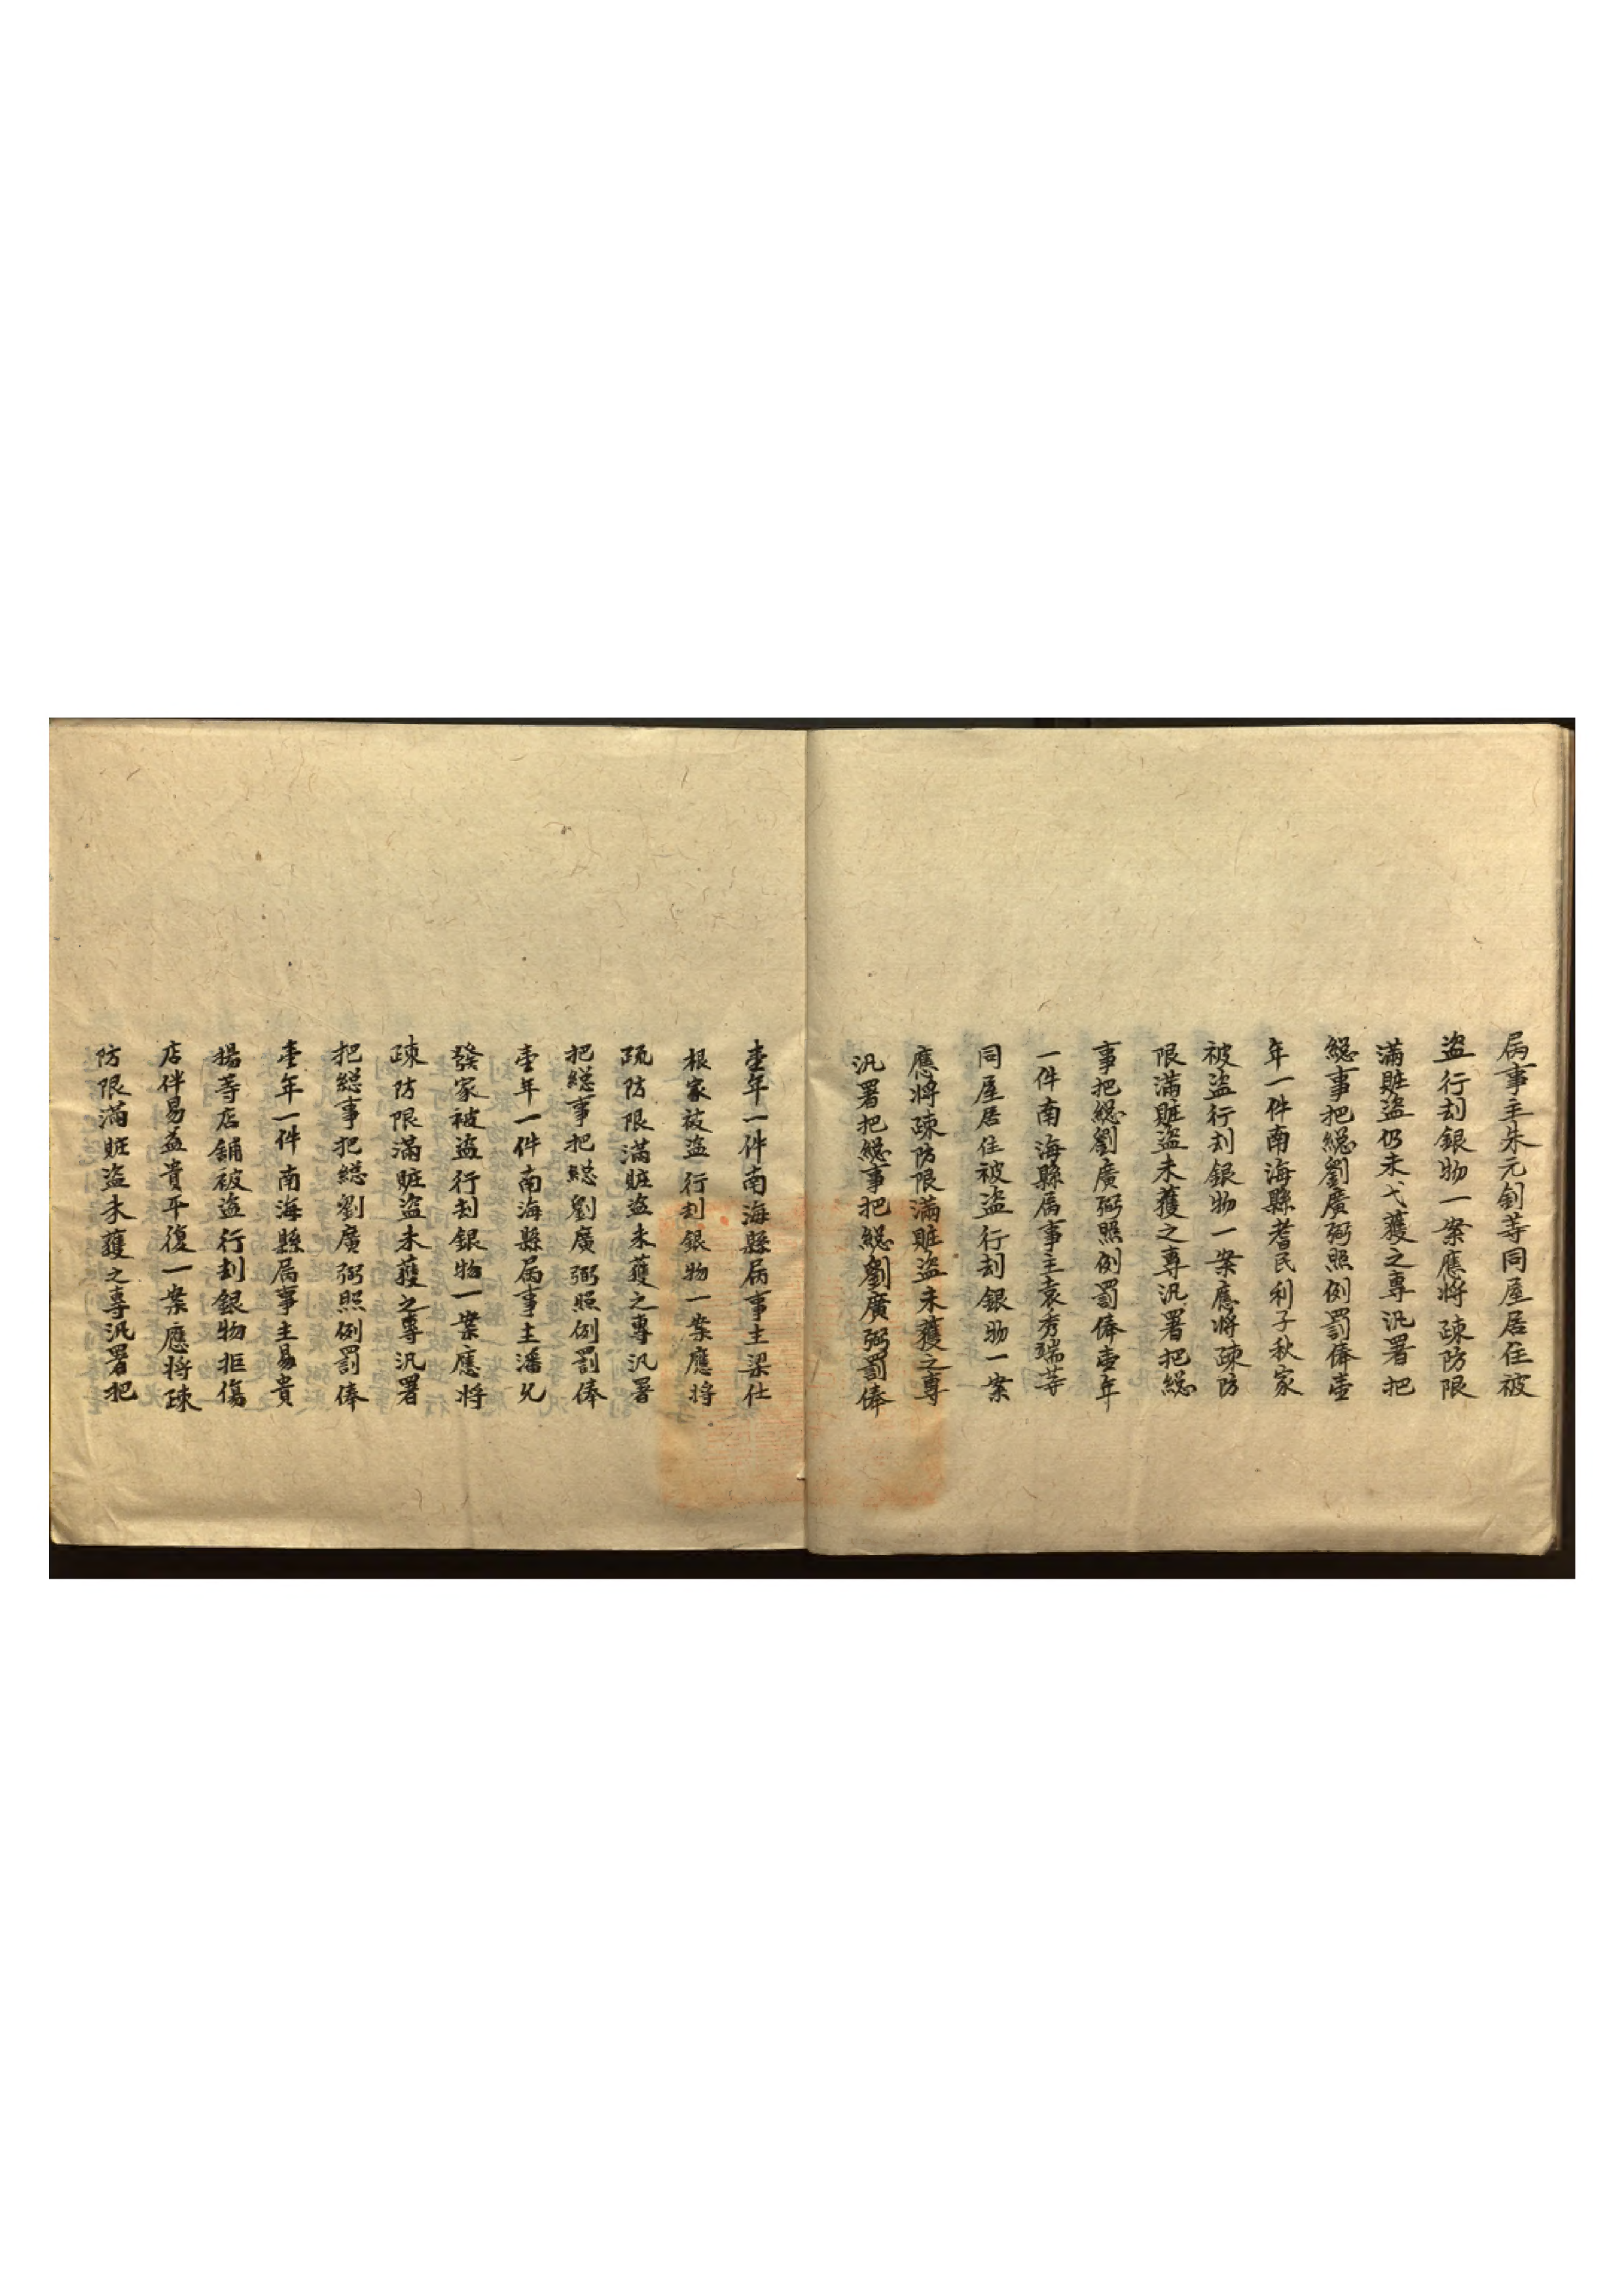 属事主朱元釗等同屋居住被
盗行刦銀物一案應将疎防限
滿賍盗仍未弋獲之專汛署把
総事把総劉廣弼照例罰俸壹
年一件南海縣耆民利子秋家
被盗行刦銀物一案應将疎防
限滿賍盗未獲之專汛署把総
事把総劉廣弼照例罰俸壹年
一件南海縣属事主袁秀瑞等
同屋居住被盗行刦銀物一案
應将疎防限滿賍盗未獲之專
汛署把総事把総劉廣弼罰俸
壹年一件南海縣属事主梁仕
根家被盗行刦銀物一案應将
疏防限滿賍盗未獲之專汛署
把総事把総劉廣弼照例罰俸
壹年一件南海縣属事主潘允
發家被盗行刦銀物一案應将
疎防限滿賍盗未獲之專汛署
把総事把総劉廣弼照例罰俸
壹年一件南海縣属事主易貴
揚等店舖被盗行刦銀物拒傷
店伴易益貴平復一案應将疎
防限滿賍盗未獲之專汛署把